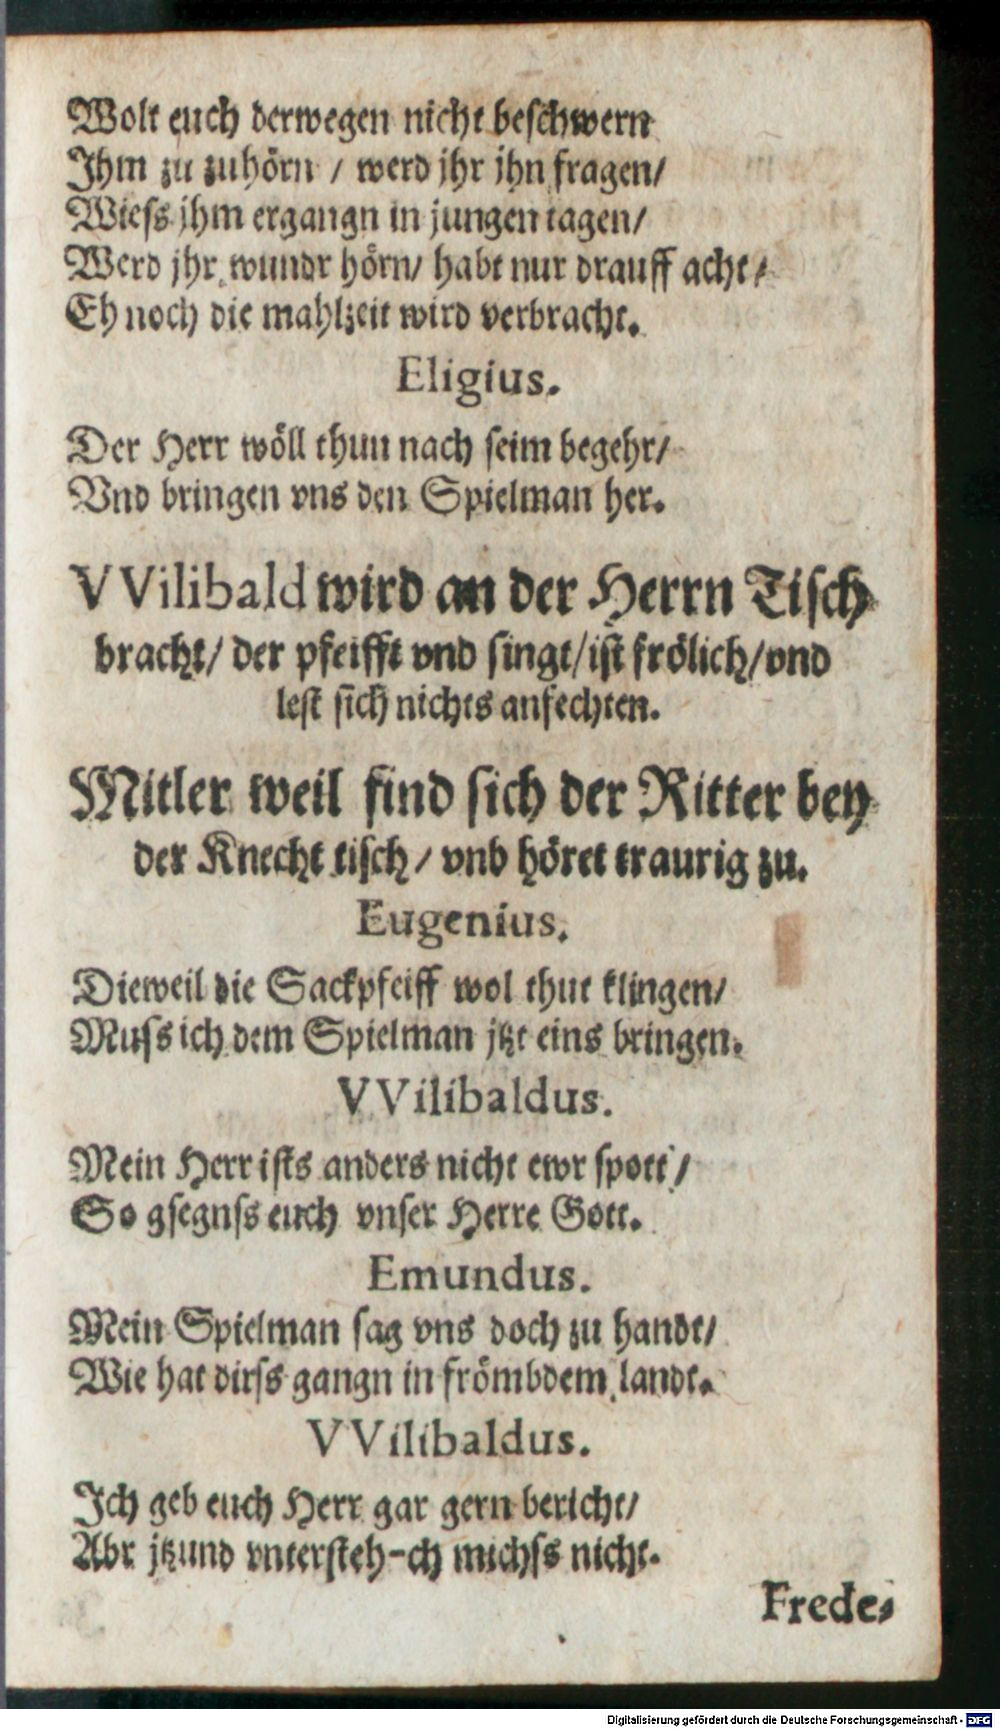 Wolt euch derwegen nicht beschwern
Ihm zu zuhörn / werd jhr jhn fragen/
Wiess jhm ergangn in jungen tagen/
Werd jhr wundr hörn/ habt nur drauff acht/
Eh noch die mahlzeit wird verbracht.
Eligius.
Der Herr wöll thun nach seim begehr/
Vnd bringen vns den Spielman her.
VVilibald wird an der Herrn Tisch
bracht/ der pfeifft vnd singt/ ist frölich/ vnd
lest sich nichts anfechten.
Mitler weil find sich der Ritter bey
der Knecht tisch/ vnd höret traurig zu.
Eugenius.
Dieweil die Sackpfeiff wol thut klingen/
Muss ich dem Spielman jtzt eins bringen.
VVilibaldus.
Mein Herr ists anders nicht ewr spott/
So gsegnss euch vnser Herre Gott.
Emundus.
Mein Spielman sag vns doch zu handt/
Wie hat dirss gangn in frömbdem landt.
VVilibaldus.
Ich geb euch Herr gar gern bericht/
Abr jtzund vntersteh-ch michss nicht.
Frede-
Digitalisierung gefördert durch die Deutsche Forschungsgemeinschaft - DFG